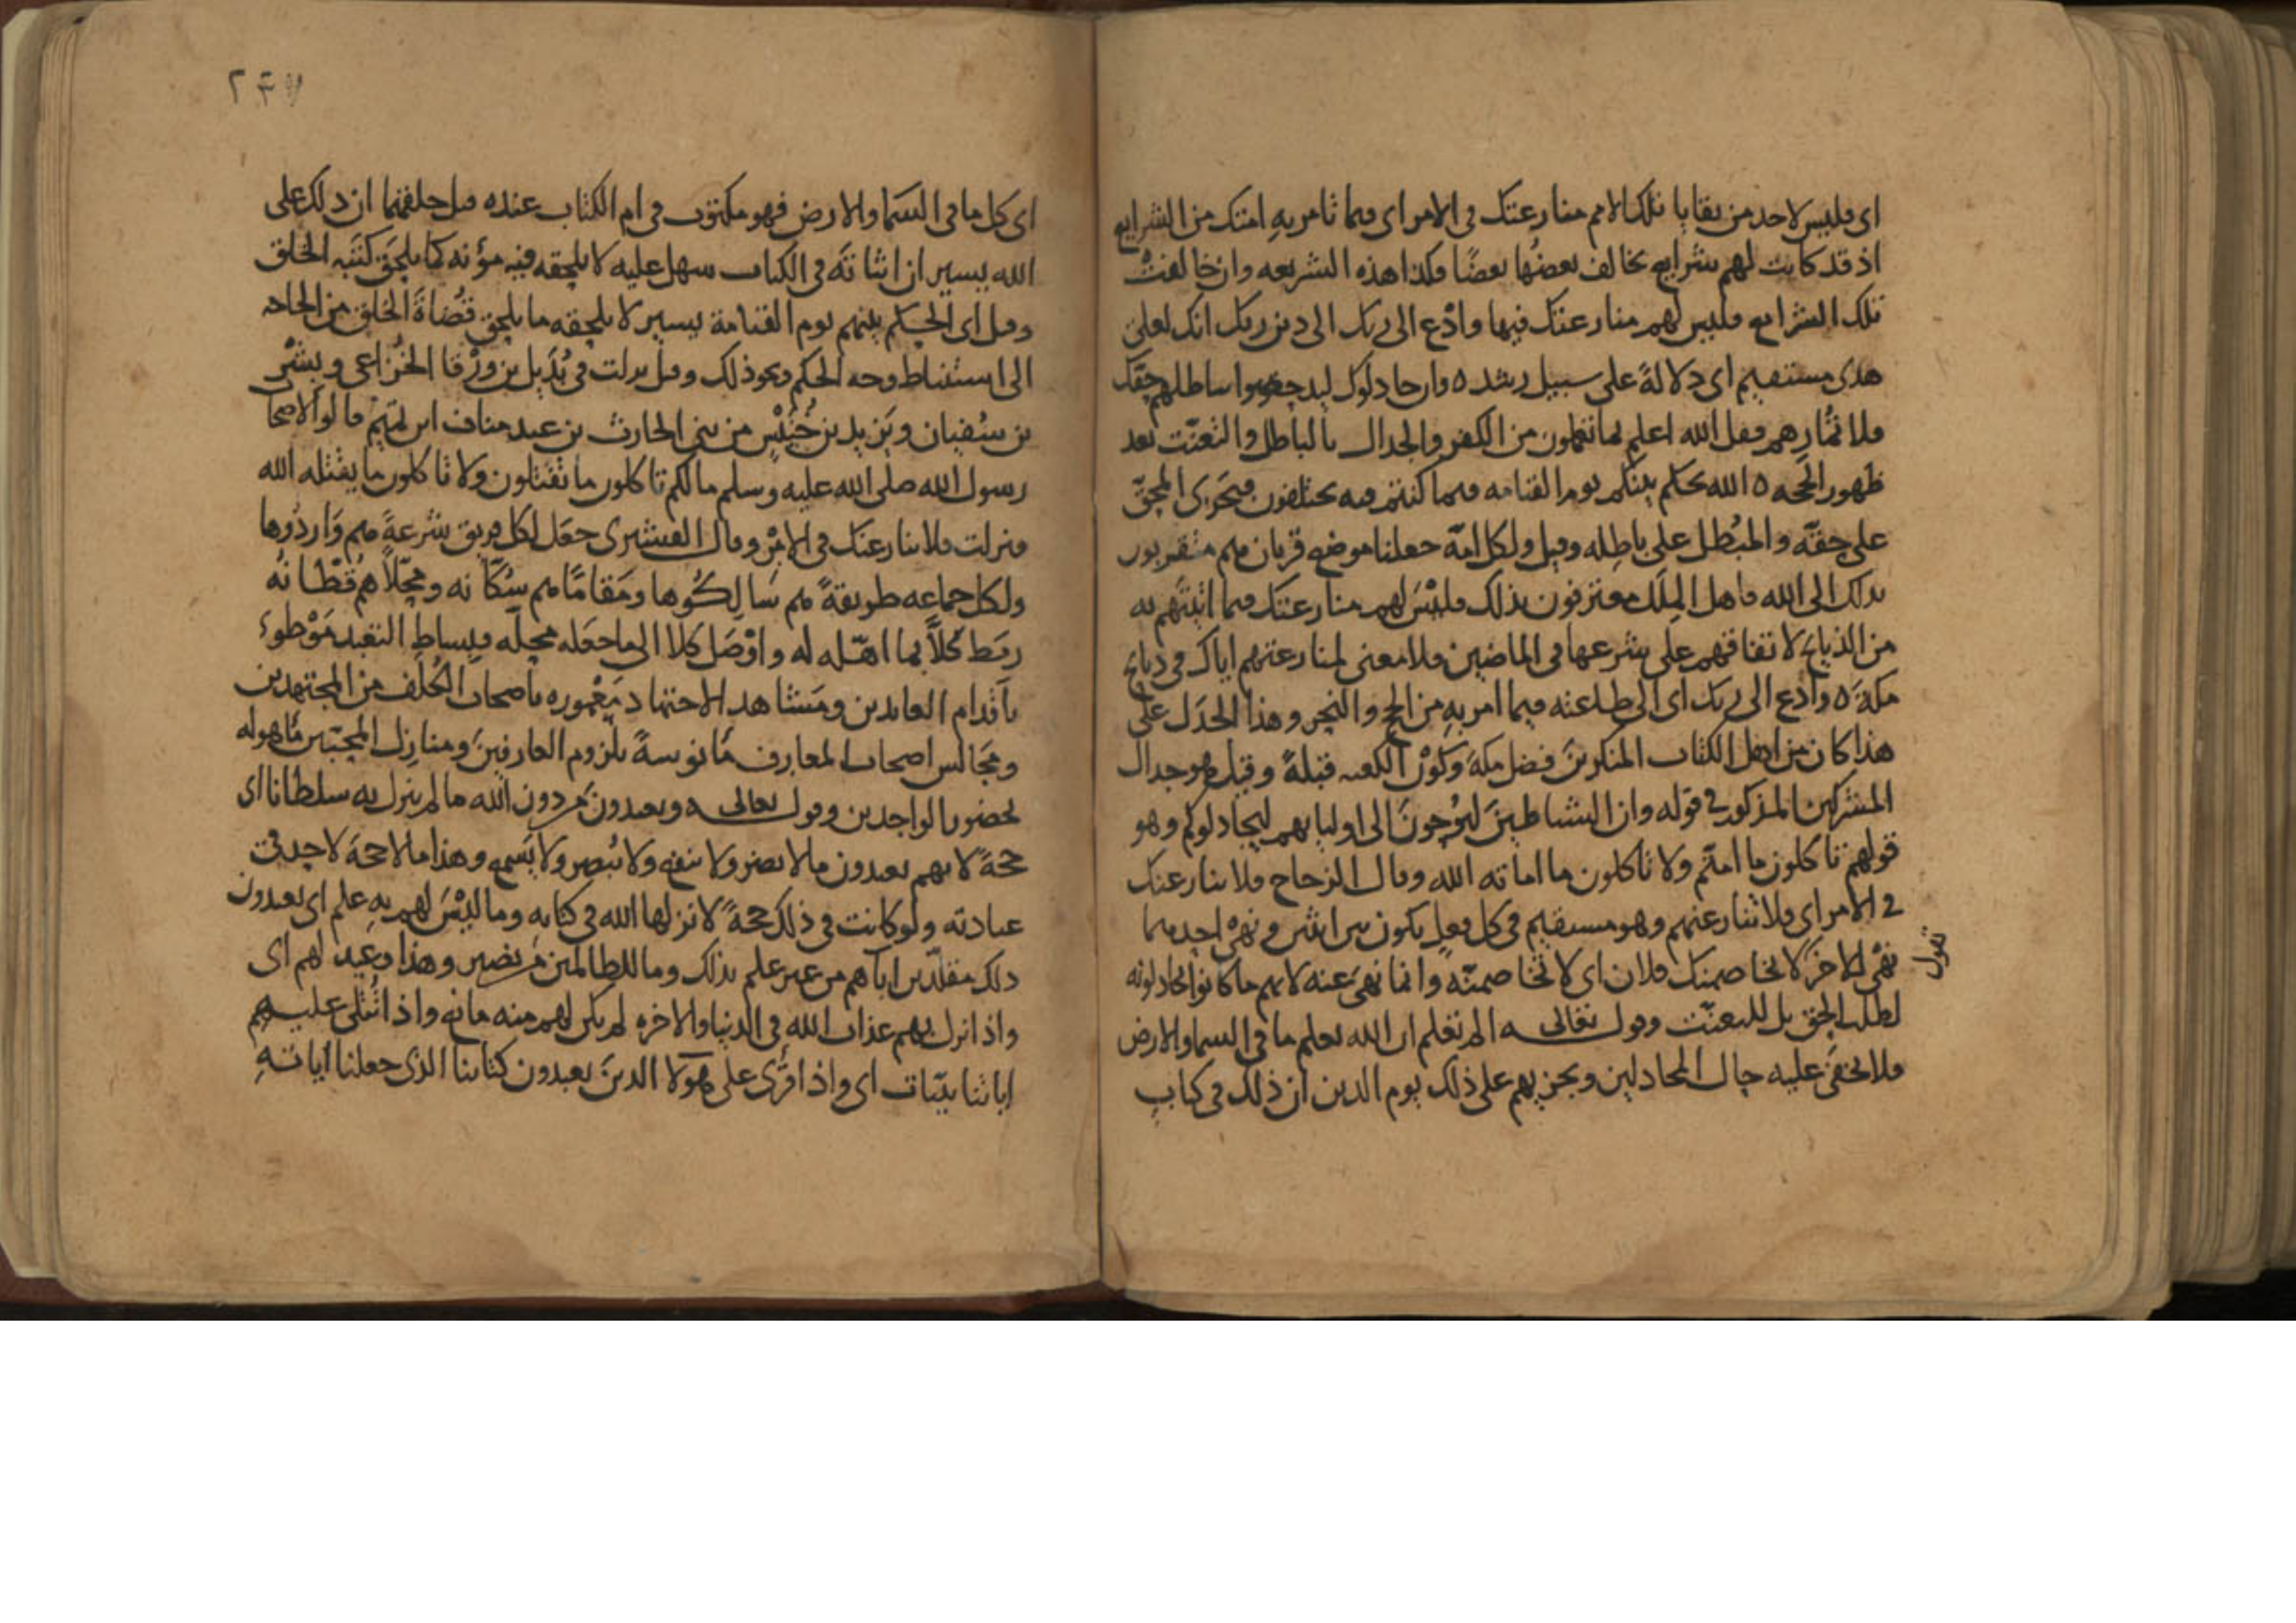 اى فليس لاحد من بقايا تلك الامم منازعتك فى الامر اى فيما تامر به امتك من الشرايع
اذ قد كانت لهم شرايع يخالف بعضُها بعضًا فكذا هذه الشريعه وان خالفتْ
تلك الشرايع فليس لهم منازعتك فيها وادْع الى ربك الى دين ربك انك لعلى
هدى مستقيم اى دلالةً على سبيل رشد ه وان جادلوك ليدحضوا بباطلهم حقّك
فلا تُمارِهم فقل الله اعلم بما تعملون من الكفر والجدال بالباطل والتعنّت بعد
ظهور الحجه ه الله يحكم بينكم يوم القيامه فيما كنتم فيه تختلفون فيَجزى المحقّ
على حقّه والمُبْطل على باطِله وقيل ولكل امّة جعلنا موضع قربان هم متقربون
بذلك الى الله فاهل المِلَل معترفون بذلك فليْسَ لهم منازعتك فيما اتيتَهم به
من الذبايح لاتفاقهم على شرعها فى الماضين فلا معنى لمنازعتهم اياك فى ذبايح
مكة ه وادع الى ربك اى الى طاعته فيما امر به من الحج والنحر وهذا الجَدَل على
هذا كان من اهل الكتاب المنكرين فضل مكةَ وكَوْن الكعبه قبلةً وقيل هو جدال
المشركين المذكور فى قوله وان الشياطينَ ليُوحونَ الى اوليايهم ليجادلوكم وهو
قولهم تاكلون ما امتّم ولا تاكلون ما اماته الله وقال الزجاج فلا ينازعنك
فى الامر اى فلا تنازعنهم وهو مستقيم فى كل فعلٍ يكون بين اثنين فى نهْىِ احدهما
نهْى للاخر تقول لا يخاصمنك فلان اى لا تخاصمنّه وانما نهىَ عنه لانهم ما كانوا يجادلونه
لطلب الحق بل للتعنّت وقول تعالى ه الم تعلم ان الله يعلم ما فى السما والارض
فلا يخفَى عليه حال المجادلين ويجزيهم على ذلك يوم الدين ان ذلك فى كتاب
٢٤٧
اى كل ما فى السما والارض فهو مكتوب فى ام الكتاب عنده قبل خلقهما ان ذلك على
الله يسير ان اثباتَه فى الكتاب سهل عليه لا يلحقه فيه مؤنه كما يلحق كَتَبه الخلق
وقيل اى الحكم بينهم يوم القيامة يسير لا يلحقه ما يلحق قُضاةَ الخلق من الحاجه
الى استنباط وجه الحكم ونحو ذلك وقيل نزلت فى بُدَيل بن وَرْقا الخُزاعى وبِشْر
بن سُفيان ويَزيد بن خُنَيْس من بنى الحارث بن عبد مناف ابن لهم قالوا لاصحاب
رسول الله صلى الله عليه وسلم ما لكم تاكلون ما تقتلون ولا تاكلون ما يقتله الله
فنزلت فلا ينازعنك فى الامْرِ وقال القشيرى جعَل لكل فريق شرعةً هم وَارِدُوها
ولكل جماعه طريقةً هم سَالِكُوها ومَقامًا هم سُكّانه ومحِلاًّ هُم قُطّانُه
ربَط كُلاًّ بما اهّله له واوْصَل كلا الى ما جعَله محِلّه فبِساط التعبد مَوْطوء
باَقدام العابدين ومَشاهد الاجتهاد مَعْموره باصحاب الكُلَف من المجتهدين
ومَجالس اصحاب المعارف مَانوسةً بلزوم العارفين ومنازل المحبّين مَاهوله
بحضور الواجدين وقول تعالى ه ويعبدونَ من دون الله ما لم ينزل به سلطانا اى
حجةً لانهم يعبدون ما لا يضر ولا ينفع ولا يُبصر ولا يَسمع وهذا ما لا حجة لاحد فى
عبادته ولو كانت فى ذلك حجةً لانزلها الله فى كتابه وما ليْسَ لهم بهِ علم اى يعبدون
ذلك مقلّدين اباهم من غير علم بذلك وما للظالمين من نصير وهذا وعيد لهم اى
واذا نزل بهم عذاب الله فى الدنيا والاخره لم يكن لهم منه مانع واذا تُتلى عليهم
اياتنا بيّنات اى واذا قُرى على هولا الذينَ يعبدون كتابنا الذى جعلنا اياتهِ